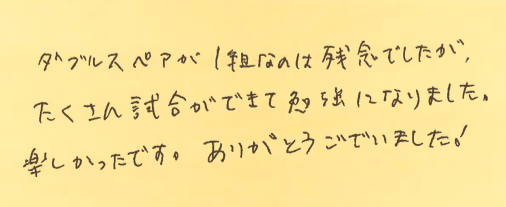 ダブルスペアが1組なのは残念でしたが、
たくさん試合ができて勉強になりました。
楽しかったです。ありがとうございました!